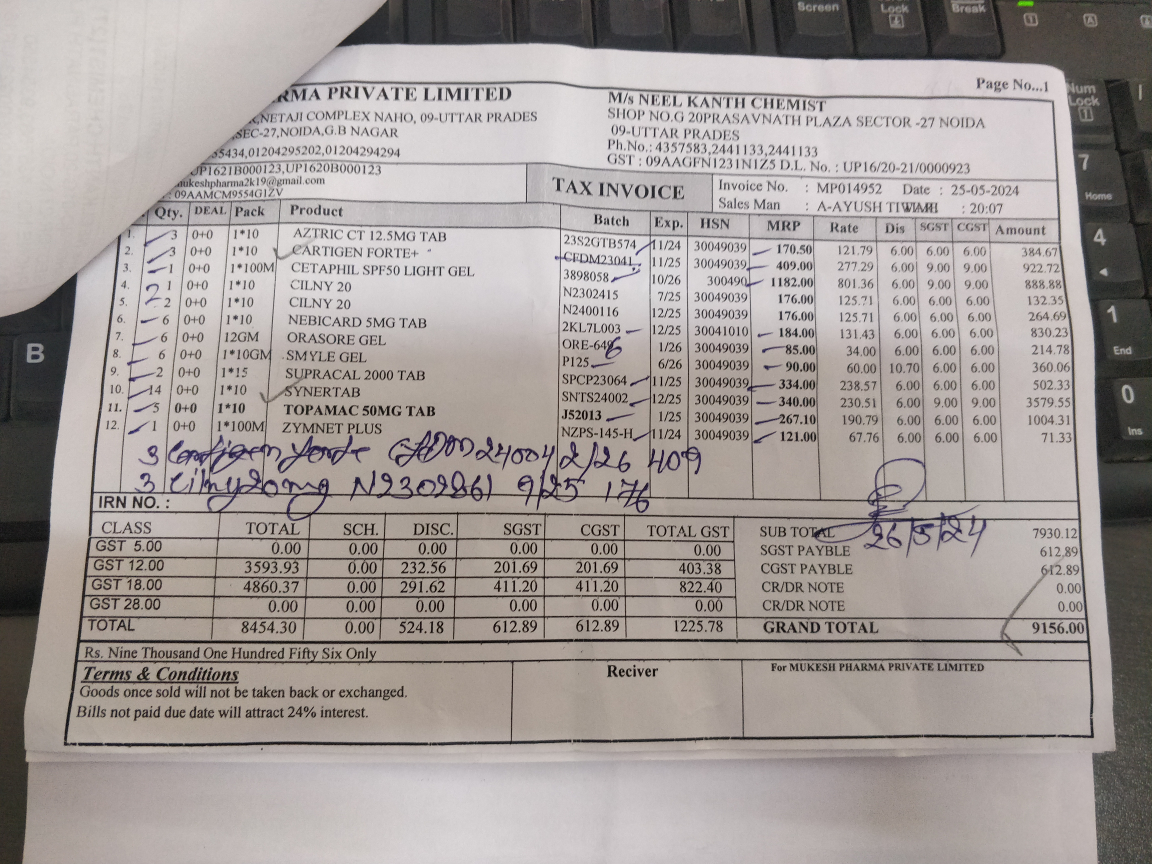 Page No...1
RMA PRIVATE LIMITED
NETAJI COMPLEX NAHO, 09-UTTAR PRADES
SEC-27,NOIDA,G.B NAGAR
55434,01204295202,01204294294
UP1621B000123,UP1620B000123
mukeshpharma2k19@gmail.com
: 09AAMCM9554G1ZV
M/s NEEL KANTH CHEMIST
SHOP NO.G 20PRASAVNATH PLAZA SECTOR -27 NOIDA
09-UTTAR PRADES
Ph.No.: 4357583,2441133,2441133
GST : 09AAGFN1231N1Z5 D.L. No. : UP16/20-21/0000923
TAX INVOICE
Invoice No. : MP014952 Date : 25-05-2024
Sales Man : A-AYUSH : 20:07
Qty. DEAL Pack Product Batch Exp. HSN MRP Rate Dis SGST CGST Amount
1. 3 0+0 1*10 AZTRIC CT 12.5MG TAB 23S2GTB574 11/24 30049039 170.50 121.79 6.00 6.00 6.00 384.67
2. 3 0+0 1*10 CARTIGEN FORTE+ CFDM23041 11/25 30049039 409.00 277.29 6.00 9.00 9.00 922.72
3. 1 0+0 1*100M CETAPHIL SPF50 LIGHT GEL 3898058 10/26 300490 1182.00 801.36 6.00 9.00 9.00 888.88
4. 1 0+0 1*10 CILNY 20 N2302415 7/25 30049039 176.00 125.71 6.00 6.00 6.00 132.35
5. 2 0+0 1*10 CILNY 20 N2400116 12/25 30049039 176.00 125.71 6.00 6.00 6.00 264.69
6. 6 0+0 1*10 NEBICARD 5MG TAB 2KL7L003 12/25 30041010 184.00 131.43 6.00 6.00 6.00 830.23
7. 6 0+0 12GM ORASORE GEL ORE-646 1/26 30049039 85.00 34.00 6.00 6.00 6.00 214.78
8. 6 0+0 1*10GM SMYLE GEL P125 6/26 30049039 90.00 60.00 10.70 6.00 6.00 360.06
9. 2 0+0 1*15 SUPRACAL 2000 TAB SPCP23064 11/25 30049039 334.00 238.57 6.00 6.00 6.00 502.33
10. 14 0+0 1*10 SYNERTAB SNTS24002 12/25 30049039 340.00 230.51 6.00 9.00 9.00 3579.55
11. 5 0+0 1*10 TOPAMAC 50MG TAB J52013 1/25 30049039 267.10 190.79 6.00 6.00 6.00 1004.31
12. 1 0+0 1*100M ZYMNET PLUS NZPS-145-H 11/24 30049039 121.00 67.76 6.00 6.00 6.00 71.33
3 Cartigen forte CFDM24004 2/26 409
3 Cilny20mg N2302861 9/25 176
IRN NO. :
CLASS TOTAL SCH. DISC. SGST CGST TOTAL GST
GST 5.00 0.00 0.00 0.00 0.00 0.00 0.00
GST 12.00 3593.93 0.00 232.56 201.69 201.69 403.38
GST 18.00 4860.37 0.00 291.62 411.20 411.20 822.40
GST 28.00 0.00 0.00 0.00 0.00 0.00 0.00
TOTAL 8454.30 0.00 524.18 612.89 612.89 1225.78
26/5/24
SUB TOTAL 7930.12
SGST PAYBLE 612.89
CGST PAYBLE 612.89
CR/DR NOTE 0.00
CR/DR NOTE 0.00
GRAND TOTAL 9156.00
Rs. Nine Thousand One Hundred Fifty Six Only
Terms & Conditions
Goods once sold will not be taken back or exchanged.
Bills not paid due date will attract 24% interest.
Reciver
For MUKESH PHARMA PRIVATE LIMITED
Screen
Lock
Break
Num
Lock
7
Home
4
1
End
0
Ins
B